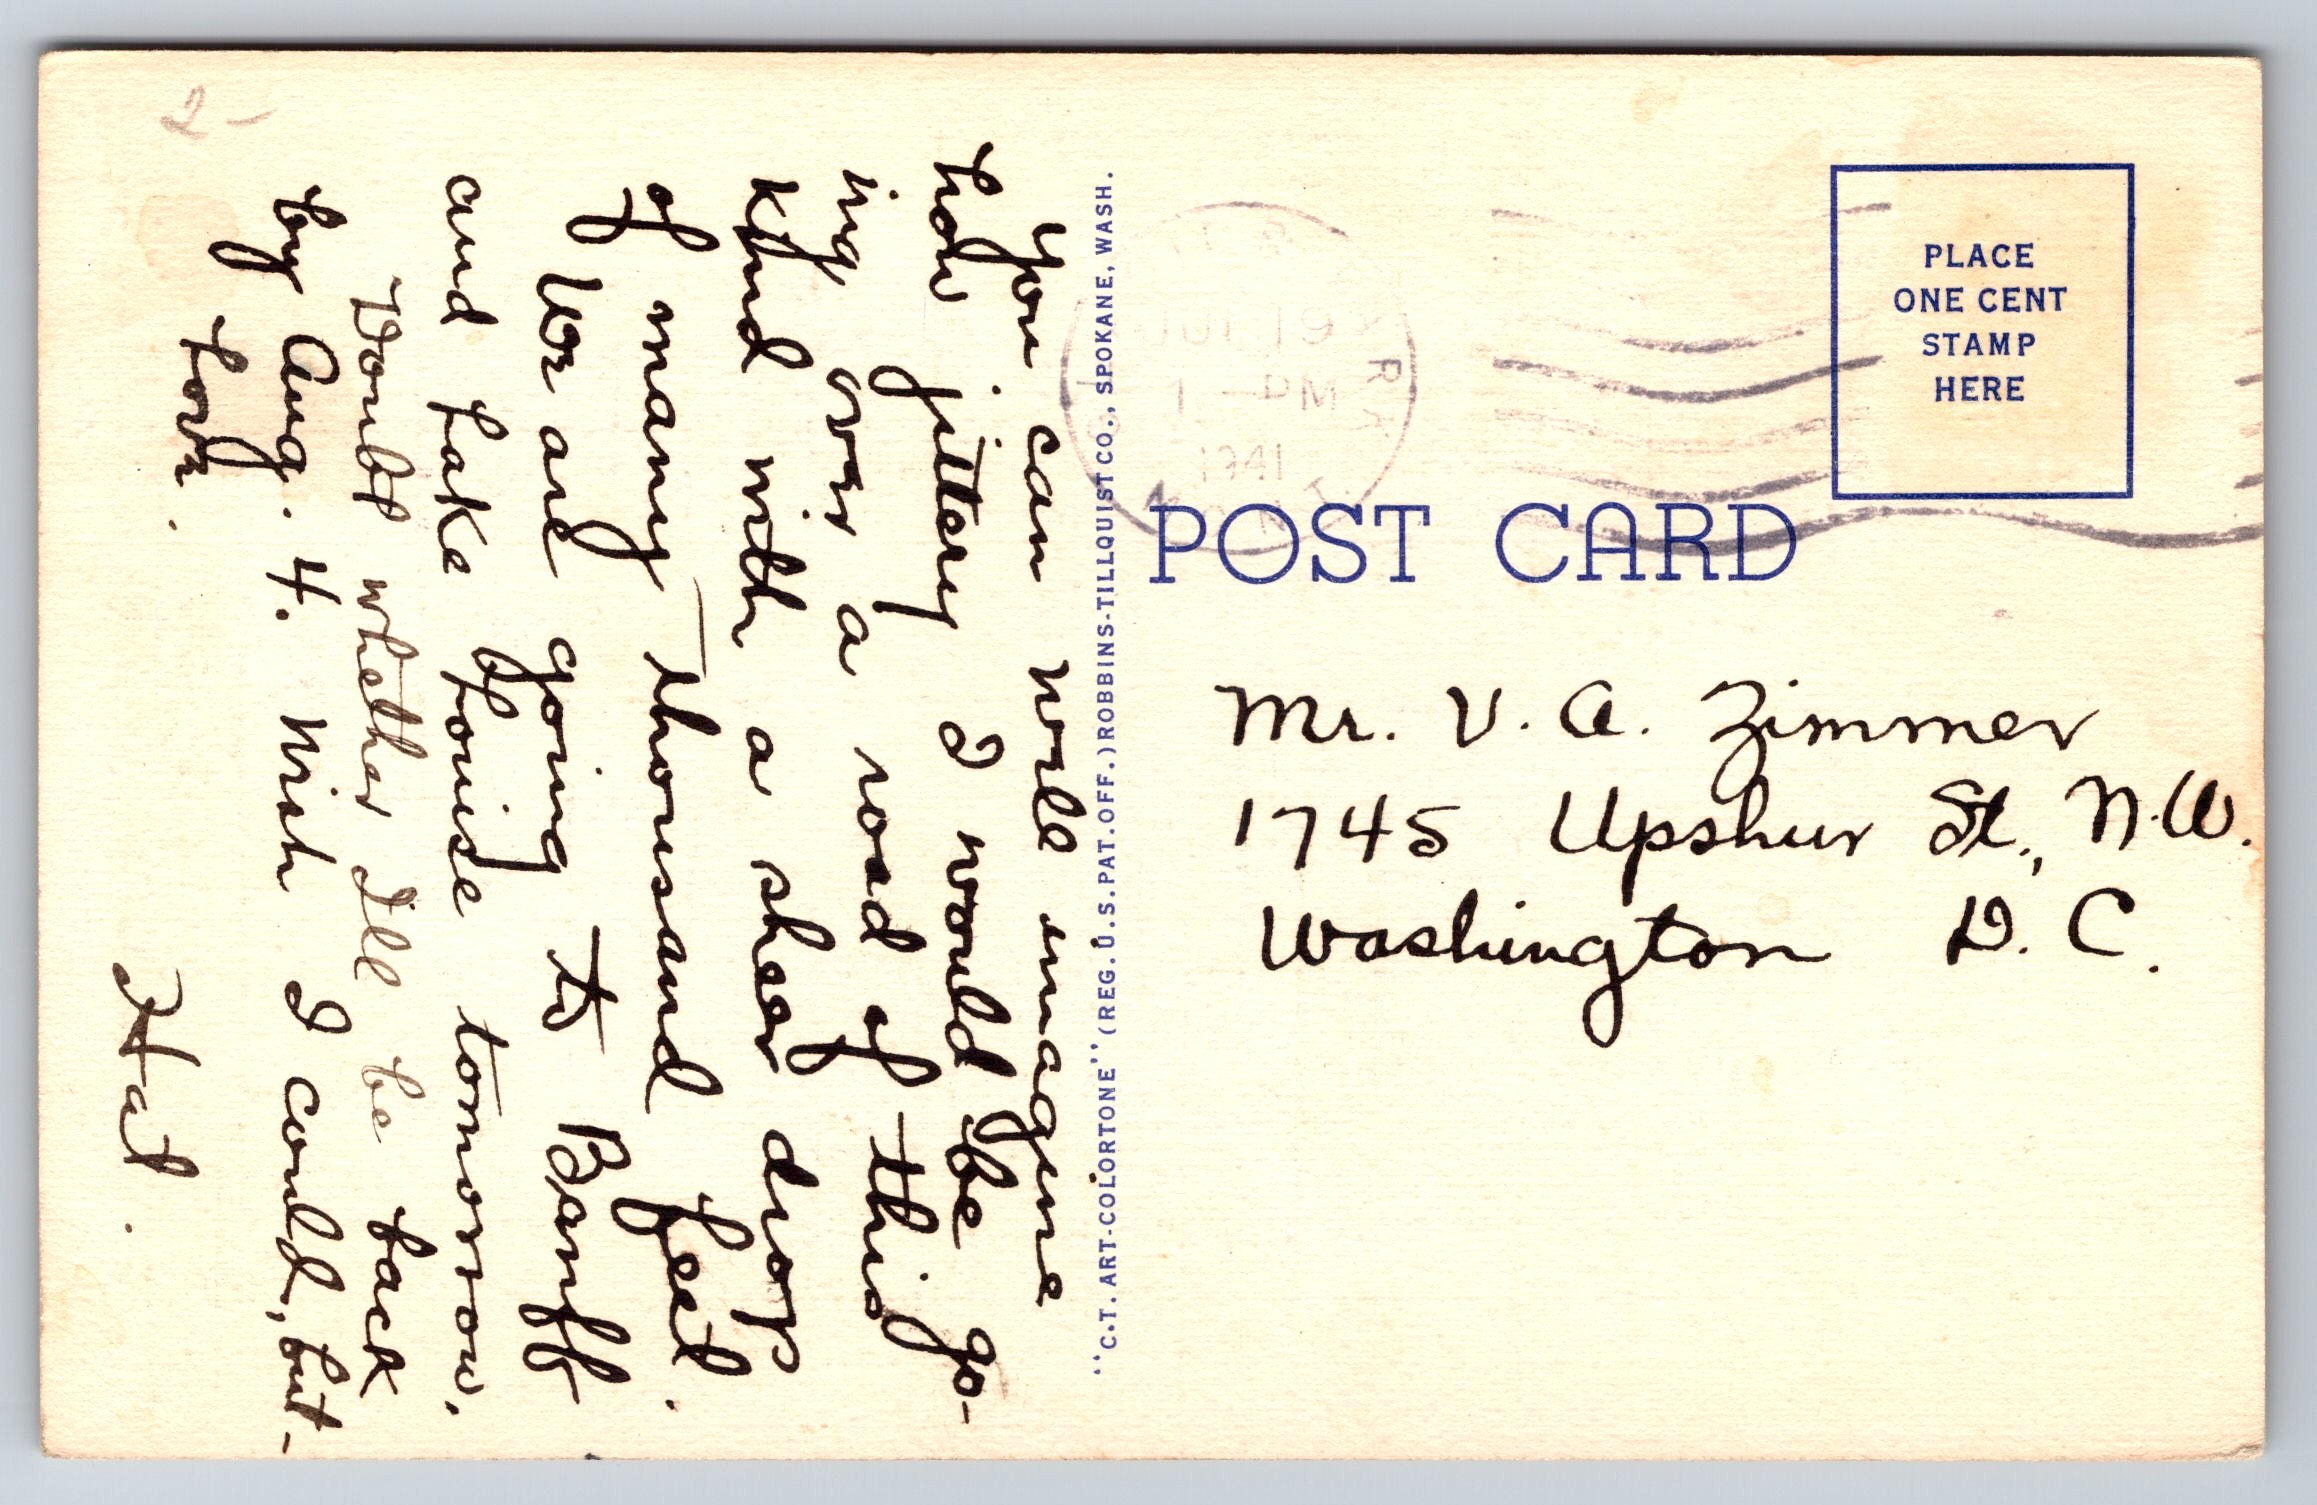 2-
You can well imagine
how jittery I would be go-
ing over a road of this
kind with a sheer drop
of many thousand feet.
We are going to Banff
and Lake Louise tomorrow.
Doubt whether I'll be back
by Aug. 4. Wish I could, but-
Love.
Hal.
"C.T. ART-COLORTONE" (REG. U.S. PAT. OFF.) ROBBINS-TILLQUIST CO., SPOKANE, WASH.
19
1-PM
1941
PLACE
ONE CENT
STAMP
HERE
POST CARD
Mr. V. A. Zimmer
1745 Upshur St., N.W.
Washington D. C.